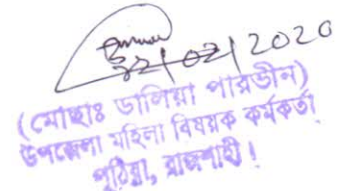 02/2020
(মোছাঃ ডালিয়া পারভীন)
উপজেলা মহিলা বিষয়ক কর্মকর্তা
পুঠিয়া, রাজশাহী।